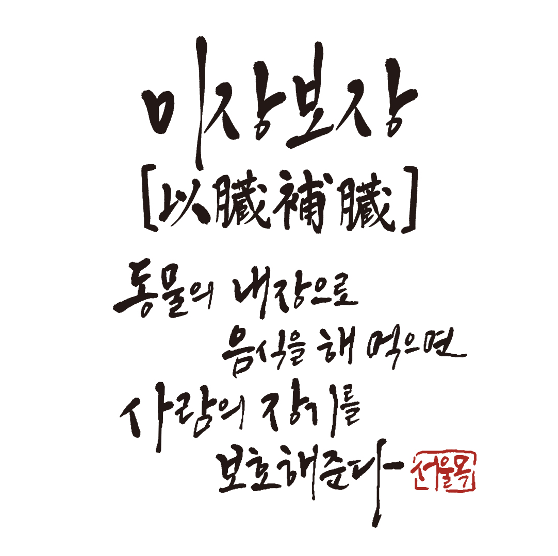 이장보장
[以臟補臟]
동물의 내장으로
음식을 해 먹으면
사람의 장기를
보호해준다
서울목